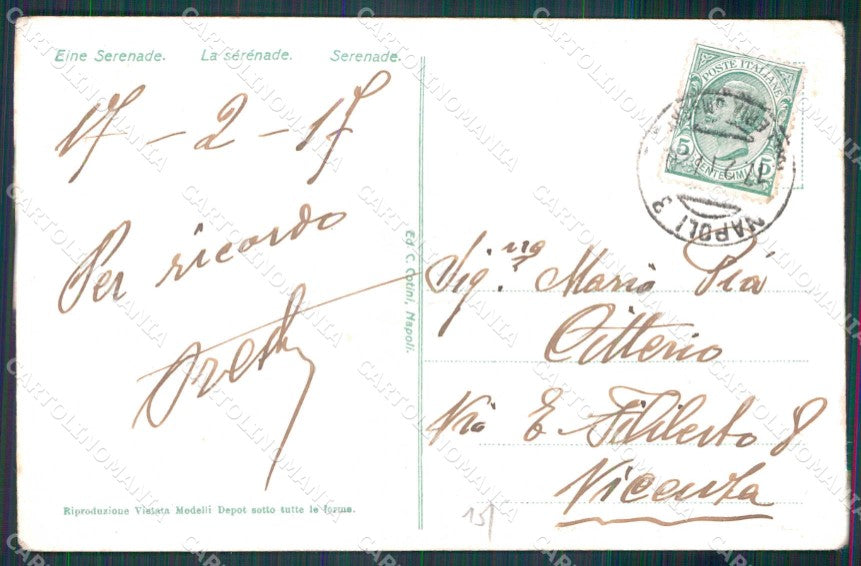 Eine Serenade. La sérénade. Serenade.
17 - 2 - 17
Per ricordo
Ed. C. Cotini, Napoli.
Riproduzione Vietata Modelli Depot sotto tutte le forme.
POSTE ITALIANE
5 CENTESIMI 5
NAPOLI 3
Sig.na Maria Pia
Citterio
Via E. Filiberto 8
Vicenza
15/
CARTOLINOMANIA